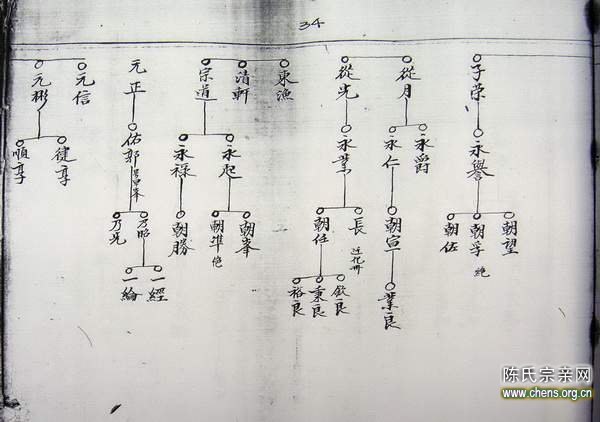 34
子榮
永譽
朝望
朝孚 絶
朝佐
從月
從光
永爵
永仁
永業
朝宣
業良
長
朝任
欽良
秉良
裕良
東漁
清軒
宗道
永起
永祿
朝峯
朝準 絶
朝勝
元正
佑郭
乃昭
乃光
一經
一綸
元信
元彬
健享
順享
陈氏宗亲网
www.chens.org.cn